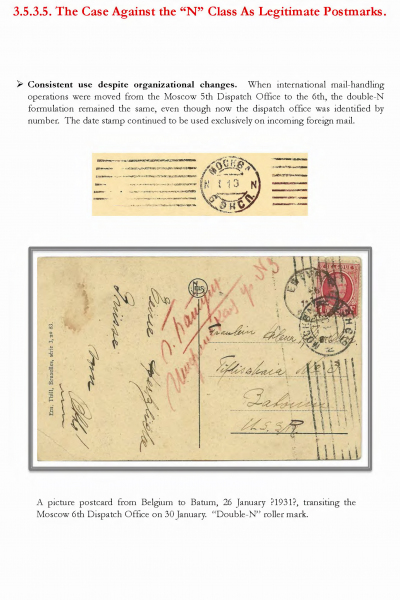 3.5.3.5. The Case Against the “N” Class As Legitimate Postmarks.
➢ Consistent use despite organizational changes. When international mail-handling
operations were moved from the Moscow 5th Dispatch Office to the 6th, the double-N
formulation remained the same, even though now the dispatch office was identified by
number. The date stamp continued to be used exclusively on incoming foreign mail.
МОСКВА
N 1 1 3 N
6 ЭКСП.
Ern. Thill, Bruxelles, série 1, no 63.
Fräulein
Batoum
U.S.S.R.
A picture postcard from Belgium to Batum, 26 January ?1931?, transiting the
Moscow 6th Dispatch Office on 30 January. “Double-N” roller mark.